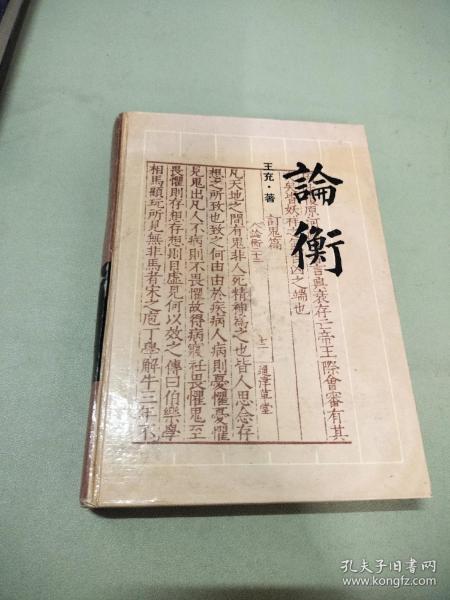 論衡
王充·著
矣皆妖祥之氣吉凶之端也
訂鬼篇
通津草堂
凡天地之間有鬼非人死精神為之也皆人思念存
想之所致也致之何由由於疾病人病則憂懼憂懼
見鬼出凡人不病則不畏懼故得病寢衽畏懼鬼至
畏懼則存想存想則目虛見何以效之傳曰伯樂學
相馬顧玩所見無非馬者宋之庖丁學解牛三年不
孔夫子旧书网
www.kongfz.com